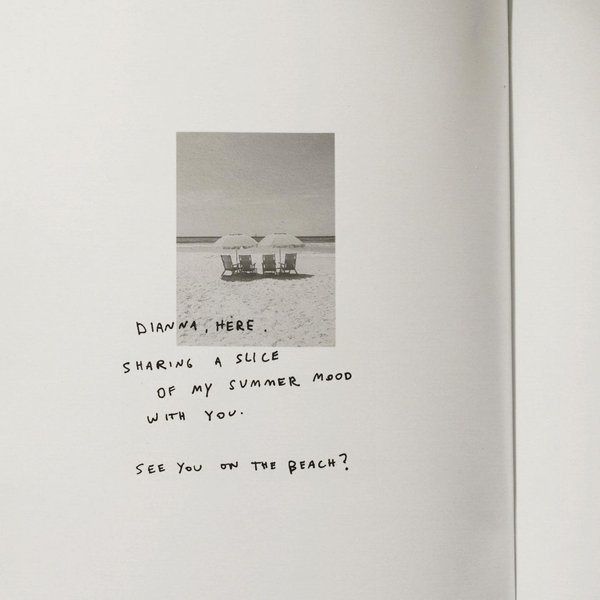 DIANNA, HERE.
SHARING A SLICE
OF MY SUMMER MOOD
WITH YOU.
SEE YOU ON THE BEACH?